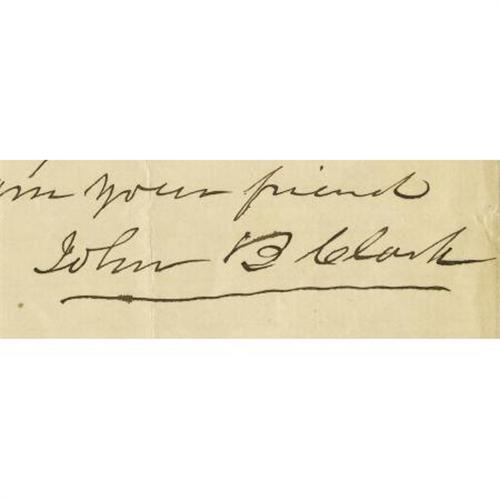 your friend
John B Clark